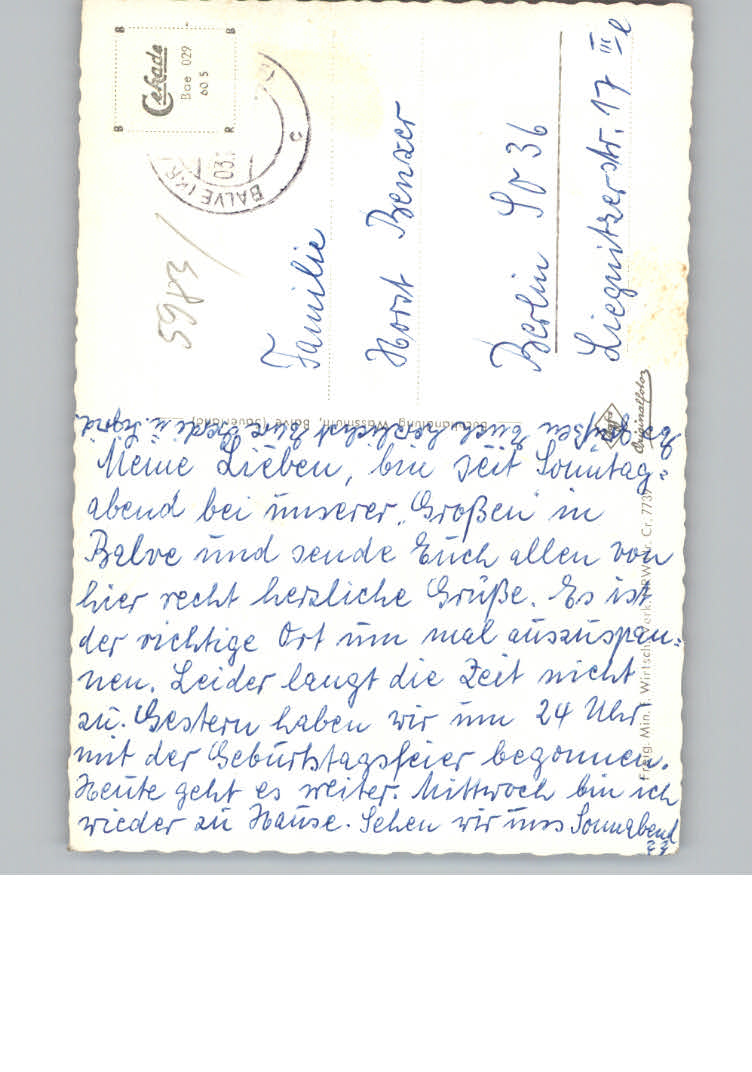 Meine Lieben, bin seit Sonntag=
abend bei unserer „Großen" in
Balve und sende Euch allen von
hier recht herzliche Grüße. Es ist
der richtige Ort um mal auszuspan=
nen. Leider langt die Zeit nicht
zu. Gestern haben wir um 24 Uhr
mit der Geburtstagsfeier begonnen.
Heute geht es weiter. Mittwoch bin ich
wieder zu Hause. Sehen wir uns Sonnabend
??
Es grüßen Euch herzlichst Eure u.
Familie
Horst Benzer
Berlin SO 36
Liegnitzerstr. 17 III l
Cekade
Bae 029
60 S
B
B
B
R
BALVE
03.
c
5983/
Buchhandlung Wassmuth, Balve (Sauerland)
Originalfoto
Freig. Min. f. Wirtsch. Verk. NRW Nr. Cr. 7739